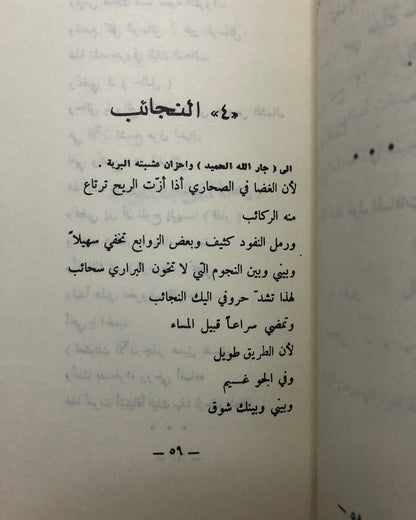 «٤» النجائب
الى ( جار الله الحميد ) واحزان عشبته البرية .
لأن الغضا في الصحاري أذا أزّت الريح ترتاع
منه الركائب
ورمل النفود كثيف وبعض الزوابع تخفي سهيلاً
وبيني وبين النجوم التي لا تخون البراري سحائب
لهذا تشدّ حروفي اليك النجائب
وتمضي سراعاً قبيل المساء
لأن الطريق طويل
وفي الجو غــيم
وبيني وبينك شوق
— ٥٩ —